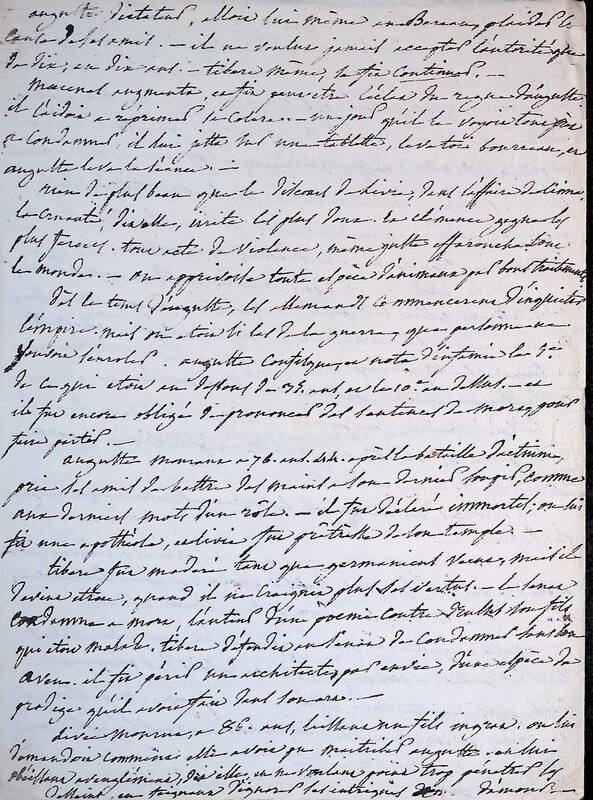 auguste dictateur, alloit lui même au Bareau, plaider la
cause de ses amis. — il ne voulut jamais accepter l'autorité que
de dix, en dix ans. — tibere même, se fit continuer. —
Mecenas augmenta, en fin peut etre l'éclat du regne d'auguste
il l'aidoit a reprimer sa colere. — un jour qu'il le voyoit tout prêt
a condamner, il lui jetta sur une tablette, leve toi bourreau, et
auguste leva la séance. —
rien de plus beau que le discours de Livie, dans l'affaire de Cinna,
la cruauté, dit elle, irrite les plus doux. la clémence gagne les
plus feroces. tout acte de violence, même juste effarouche tout
le monde. — on apprivoise toute espèce d'animaux par bons traitements
dès le tems d'auguste, les allemands commencerent d'inquieter
l'empire, mais on etoit si las de la guerre, que personne ne
vouloit s'enroler. auguste confisqua, en note d'infamie le 5e
de ce qui etoit au dessous de 35. ans, et le 10e au dessus. — et
il fut encore obligé de prononcer des sentences de mort, pour
faire partir. —
auguste mourut a 76. ans. 44. après la bataille d'actium,
pria ses amis de battre des mains a son dernier soupir, comme
aux derniers mots d'un rôle. — il fut déclaré immortel; on lui
fit une apothéose, et livie fut prêtresse de son temple. —
tibere fut modéré tant que germanicus vecut, mais il
devint atroce, quand il ne craignit plus ses vertus. — le senat
condamna a mort, l'auteur d'un poeme contre Drusus son fils
qui etoit malade. tibere défendit au senat de condamner sans son
aveu. il fit périr un architecte, par envie, d'une espèce de
prodige qu'il avoit fait dans son art. —
livie mourut, a 86. ans, laissant un fils ingrat. on lui
demandoit comment elle avoit pu maitriser auguste. en lui
obéissant aveuglément, dit elle, en ne voulant point trop pénétrer ses
desseins, en feignant d'ignorer ses intrigues d'amour. —